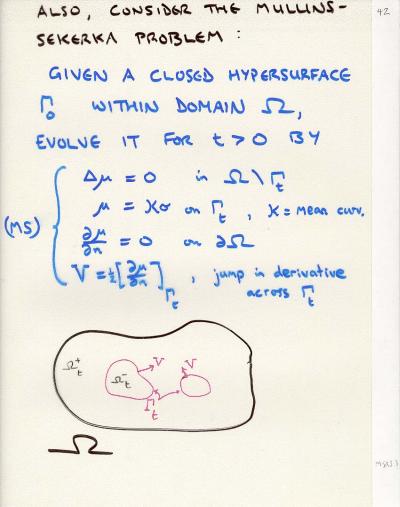 ALSO, CONSIDER THE MULLINS-
42
SEKERKA PROBLEM :
GIVEN A CLOSED HYPERSURFACE
Γ₀ WITHIN DOMAIN Ω,
EVOLVE IT FOR t > 0 BY
(MS)
Δμ = 0 in Ω \ Γt
μ = Kσ on Γt , K = mean curv.
∂μ/∂n = 0 on ∂Ω
V = ½[∂μ/∂n]Γt , jump in derivative
across Γt
Ωt⁺
Ωt⁻
V
V
Γt
Ω